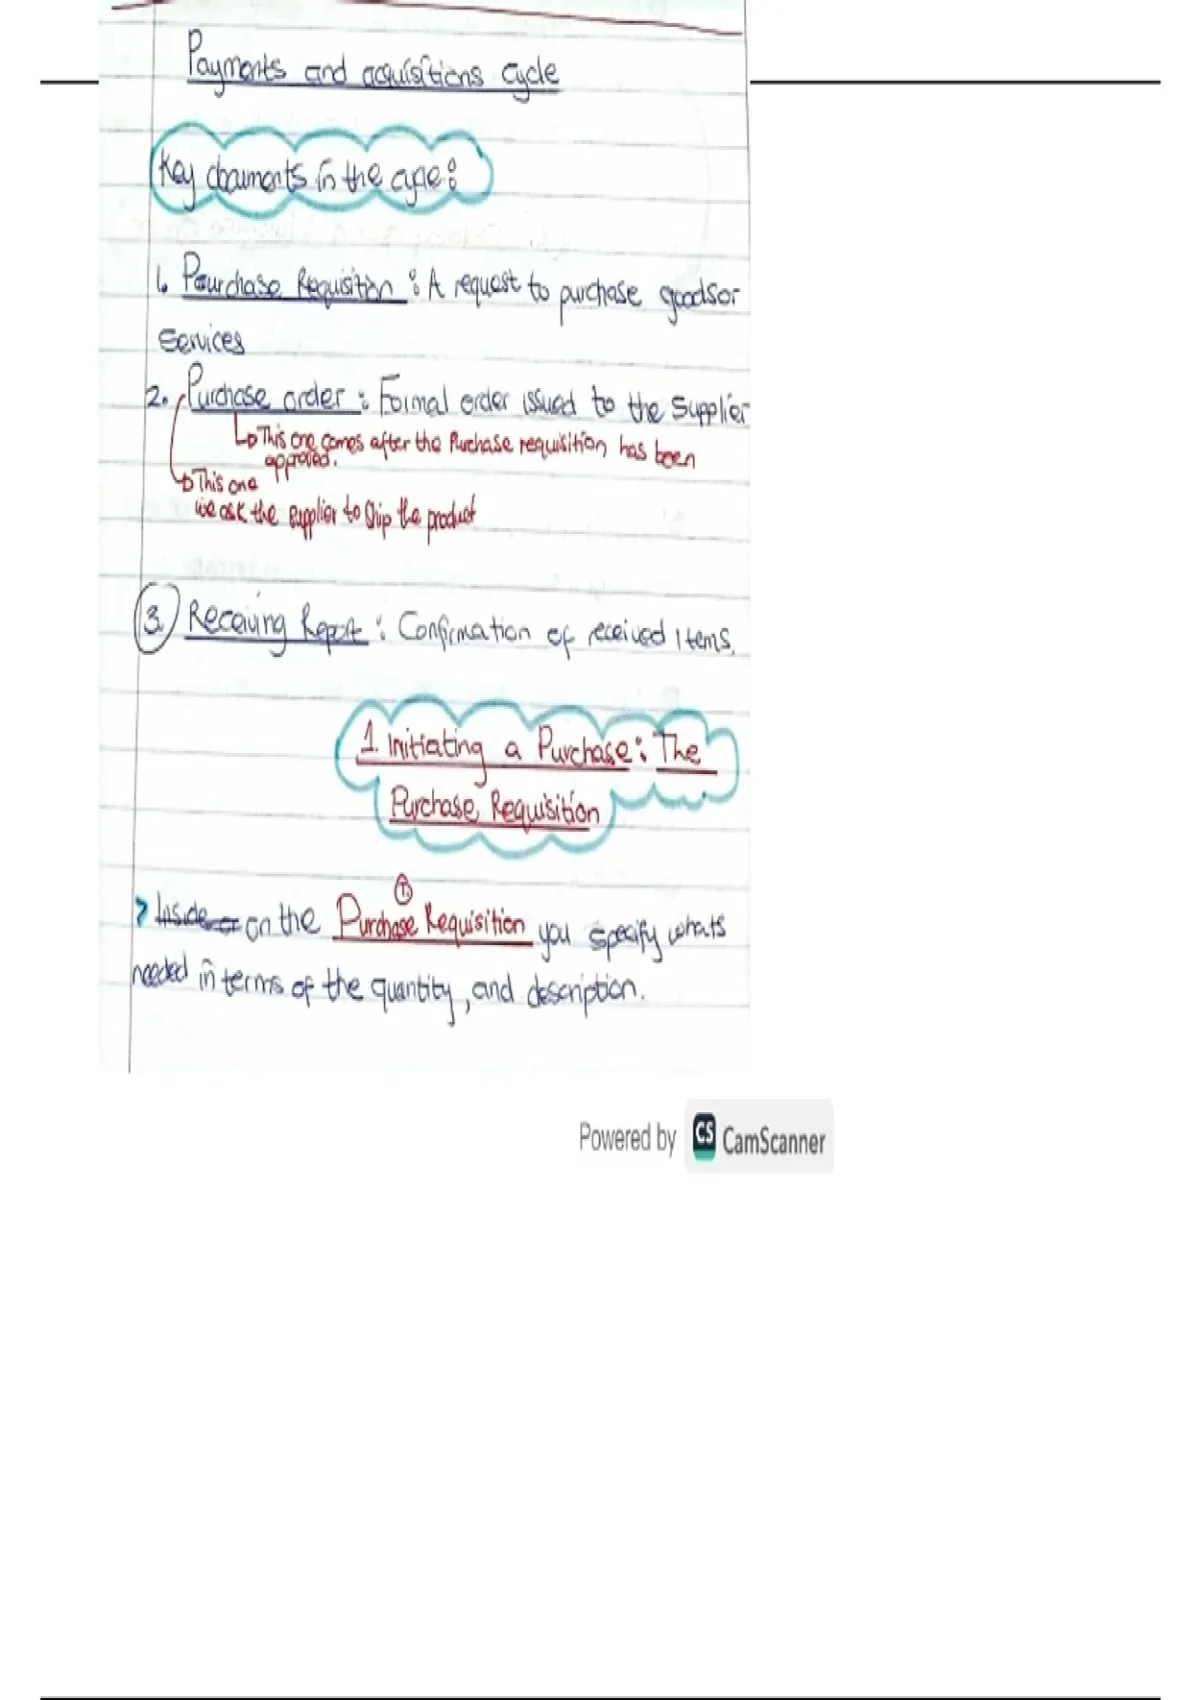 Payments and acquisitions cycle
Key documents in the cycle:
1. Pourchase Requisition : A request to purchase goods or
Services
2. Purchase order : Formal order issued to the Supplier
↳ This one comes after the Purchase requisition has been
approved.
↳ This one
we ask the supplier to ship the product
3. Receiving Report : Confirmation of received Items.
1. Initiating a Purchase: The
Purchase Requisition
1.
> Inside or on the Purchase Requisition you specify whats
needed in terms of the quantity, and description.
Powered by CS CamScanner